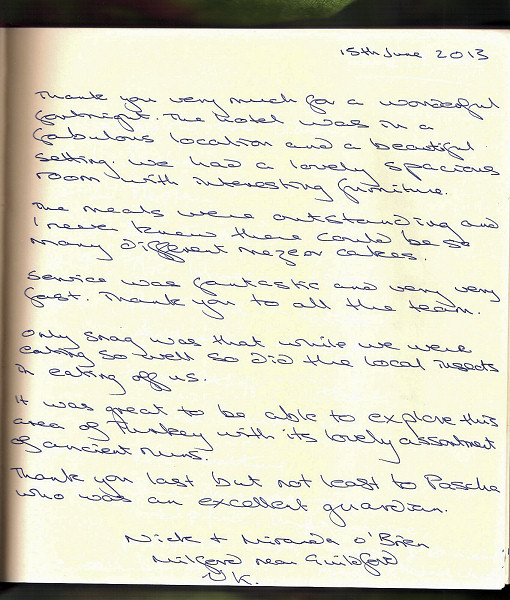 15th June 2013
Thank you very much for a wonderful
fortnight. The hotel was in a
fabulous location and a beautiful
setting. We had a lovely spacious
room with interesting furniture.
The meals were outstanding and
I never knew there could be so
many different meze or cakes.
Service was fantastic and very very
fast. Thank you to all the team.
Only snag was that while we were
eating so well so did the local insects
in eating off us.
It was great to be able to explore this
area of Turkey with its lovely assortment
of ancient ruins.
Thank you last but not least to Pascha
who was an excellent guardian.
Nick + Miranda O'Brien
Milford near Guildford
UK.